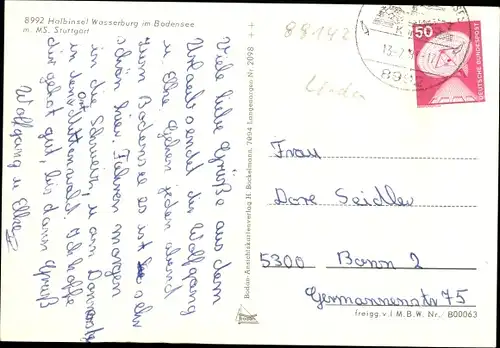 8992 Halbinsel Wasserburg im Bodensee
m. MS. Stuttgart
Viele liebe Grüße aus dem
Urlaub sendet dir Wolfgang
u. Elke Gehen jeden abend
zum Bodensee es ist sehr
schön hier. Fahren morgen
in die Schweiz, u am Donnerstag
in den
dir geht gut, bis dann Gruß
Wolfgang u Elke
Bodan-Ansichtskartenverlag H. Bockelmann, 7994 Langenargen Nr. 2098
88142
50
DEUTSCHE BUNDESPOST
Frau
Dore Seidler
5300 Bonn 2
Germannenstr 75
freigg. v. I.M.B.W. Nr./ 800063